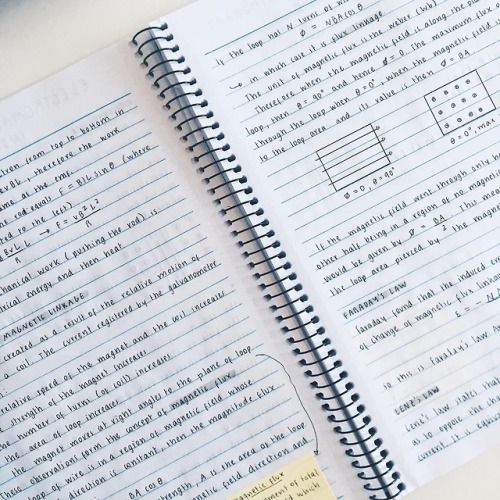 electron from top to bottom in
evBL, therefore the work
same as the emf.
rod equals F = BIL sin θ (where
ted to the left)
→ F = vB²L² / R
chanical work (pushing the rod) is
trical energy and then heat.
MAGNETIC LINKAGE
created as a result of the relative motion of
a coil. The current registered by the galvanometer
relative speed of the magnet and the coil increases
strength of the magnet increases
the number of turns (of coil) increases
the area of loop increases
the magnet moves at right angles to the plane of loop
These observations form the concept of magnetic flux
loop of wire is in a region of magnetic field whose
direction is constant, then the magnitude flux
BA cos θ
strength, A is the area of the loop
magnetic field direction and
magnetic flux
of total
which
If the loop has N turns of
Φ = NBA cos θ
→ in which case it is flux linkage
The unit of magnetic flux is the weber (Wb)
Therefore when the magnetic field is along the plane
loop, then θ = 90° and hence Φ = 0. The maximum flux
through the loop when θ = 0°, when the magnetic field
to the loop area and its value is then Φ = BA
Φ = 0, θ = 90°
θ = 0°, max
If the magnetic field went through only
other half being in a region of no magnetic
would be given by Φ = BA/2. This
the loop area pierced by the magnetic
FARADAY'S LAW
Faraday found that the induced
of change of magnetic flux linkage
ε = -
so this is Faraday's law
LENZ'S LAW
Lenz's law states that
as to oppose the
current it is